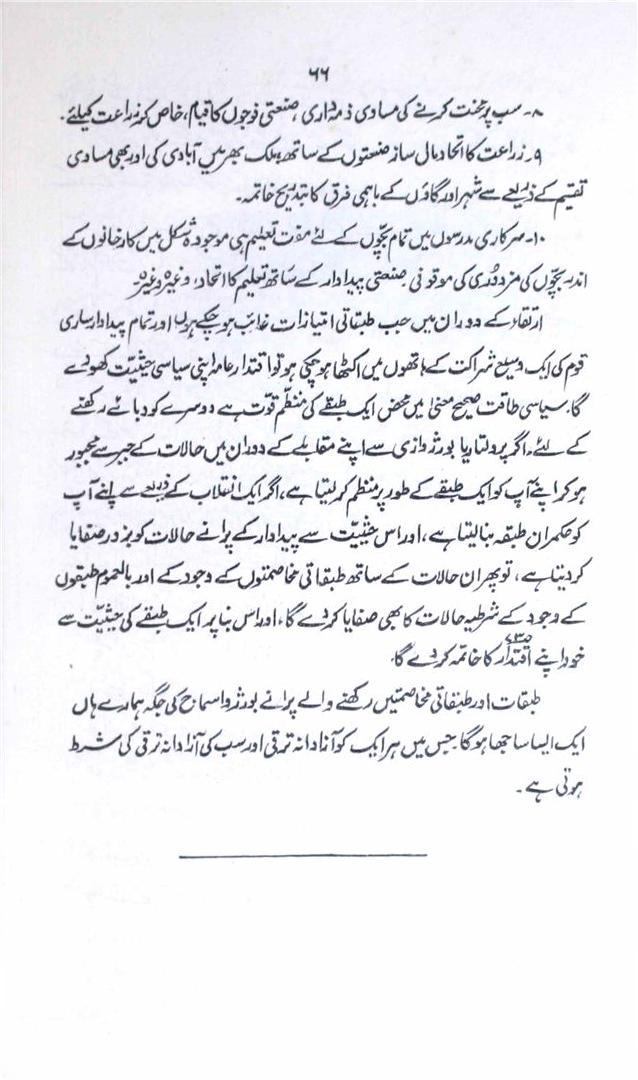 ۶۶
۸۔ سب پر محنت کرنے کی مساوی ذمہ داری، صنعتی فوجوں کا قیام، خاص کر زراعت کیلئے۔
۹۔ زراعت کا اتحاد مال ساز صنعتوں کے ساتھ، ملک بھر میں آبادی کی اور بھی مساوی
تقیم کے ذریعے سے شہر اور گاؤں کے باہمی فرق کا بتدریج خاتمہ۔
۱۰۔ سرکاری مدرسوں میں تمام بچّوں کے لئے مفت تعلیم ہی موجودہ شکل میں کارخانوں کے
اندر بچّوں کی مزدوری کی موقوفی صنعتی پیداوار کے ساتھ تعلیم کا اتحاد، وغیرہ وغیرہ۔
ارتقاء کے دوران میں جب طبقاتی امتیازات غائب ہو چکے ہوں اور تمام پیداوار ساری
قوم کی ایک وسیع شراکت کے ہاتھوں میں اکٹھا ہو چکی ہو تو اقتدار عامہ اپنی سیاسی حیثیت کھو دے
گا۔ سیاسی طاقت صحیح معنیٰ میں محض ایک طبقے کی منظّم قوت ہے دوسرے کو دبائے رکھنے
کے لئے۔ اگر پرولتاریا بورژوازی سے اپنے مقابلے کے دوران میں حالات کے جبر سے مجبور
ہو کر اپنے آپ کو ایک طبقے کے طور پر منظم کر لیتا ہے، اگر ایک انقلاب کے ذریعے سے اپنے آپ
کو حکمران طبقہ بنا لیتا ہے، اور اس حیثیت سے پیداوار کے پرانے حالات کو بزور صفایا
کر دیتا ہے، تو پھر ان حالات کے ساتھ طبقاتی مخاصمتوں کے وجود کے اور بالعموم طبقوں
کے وجود کے شرطیہ حالات کا بھی صفایا کر دے گا، اور اس بنا پر ایک طبقے کی حیثیت سے
خود اپنے اقتدار کا خاتمہ کر دے گا۔
طبقات اور طبقاتی مخاصمتیں رکھنے والے پرانے بورژوا سماج کی جگہ ہمارے ہاں
ایک ایسا ساجھا ہوگا جس میں ہر ایک کو آزادانہ ترقی اور سب کی آزادانہ ترقی کی شرط
ہوتی ہے۔